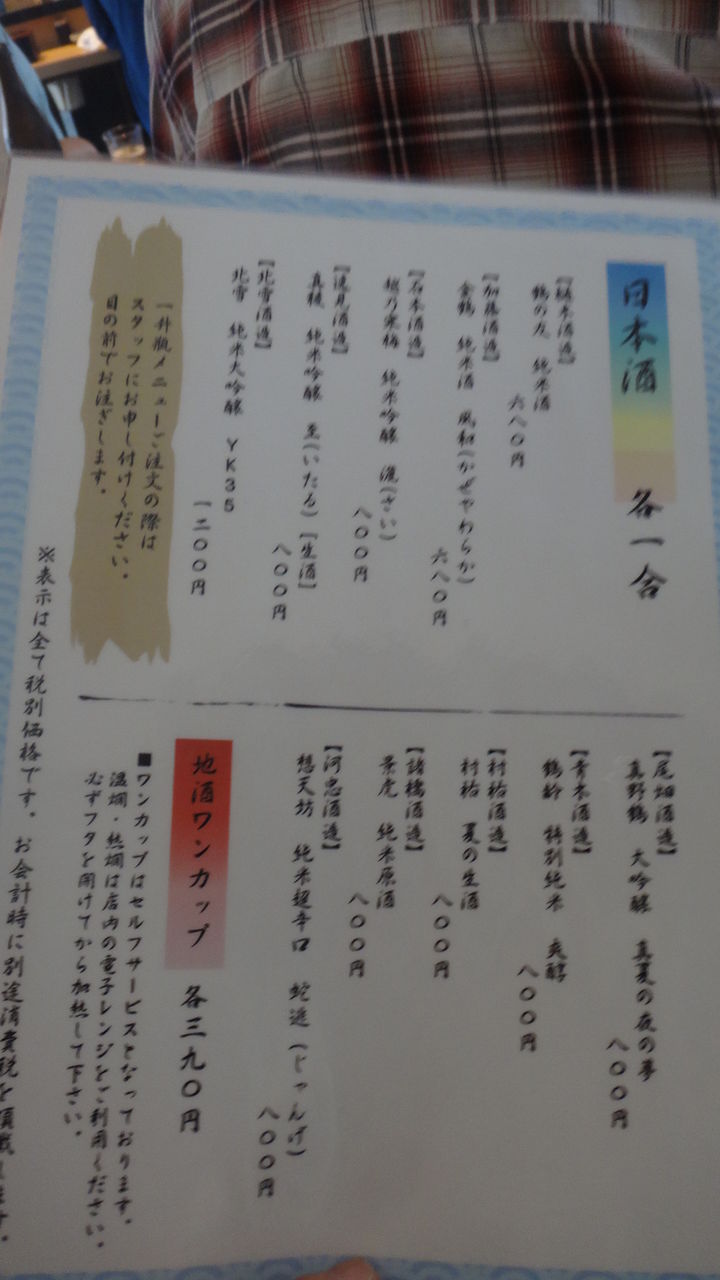 日本酒 各一合
【樋木酒造】
鶴の友 純米酒
六八〇円
【加藤酒造】
金鶴 純米酒 風和(かぜやわらか)
六八〇円
【石本酒造】
越乃寒梅 純米吟醸 灑(さい)
八〇〇円
【逸見酒造】
真稜 純米吟醸 至(いたる)【生酒】
八〇〇円
【北雪酒造】
北雪 純米大吟醸 YK35
一二〇〇円
一升瓶メニューご注文の際は
スタッフにお申し付けください。
目の前でお注ぎします。
【尾畑酒造】
真野鶴 大吟醸 真夏の夜の夢
八〇〇円
【青木酒造】
鶴齢 特別純米 爽醇
八〇〇円
【村祐酒造】
村祐 夏の生酒
八〇〇円
【諸橋酒造】
景虎 純米原酒
八〇〇円
【河忠酒造】
想天坊 純米超辛口 蛇逃(じゃんげ)
八〇〇円
地酒ワンカップ 各三九〇円
■ワンカップはセルフサービスとなっております。
温燗・熱燗は店内の電子レンジをご利用ください。
必ずフタを開けてから加熱して下さい。
※表示は全て税別価格です。お会計時に別途消費税を頂戴します。